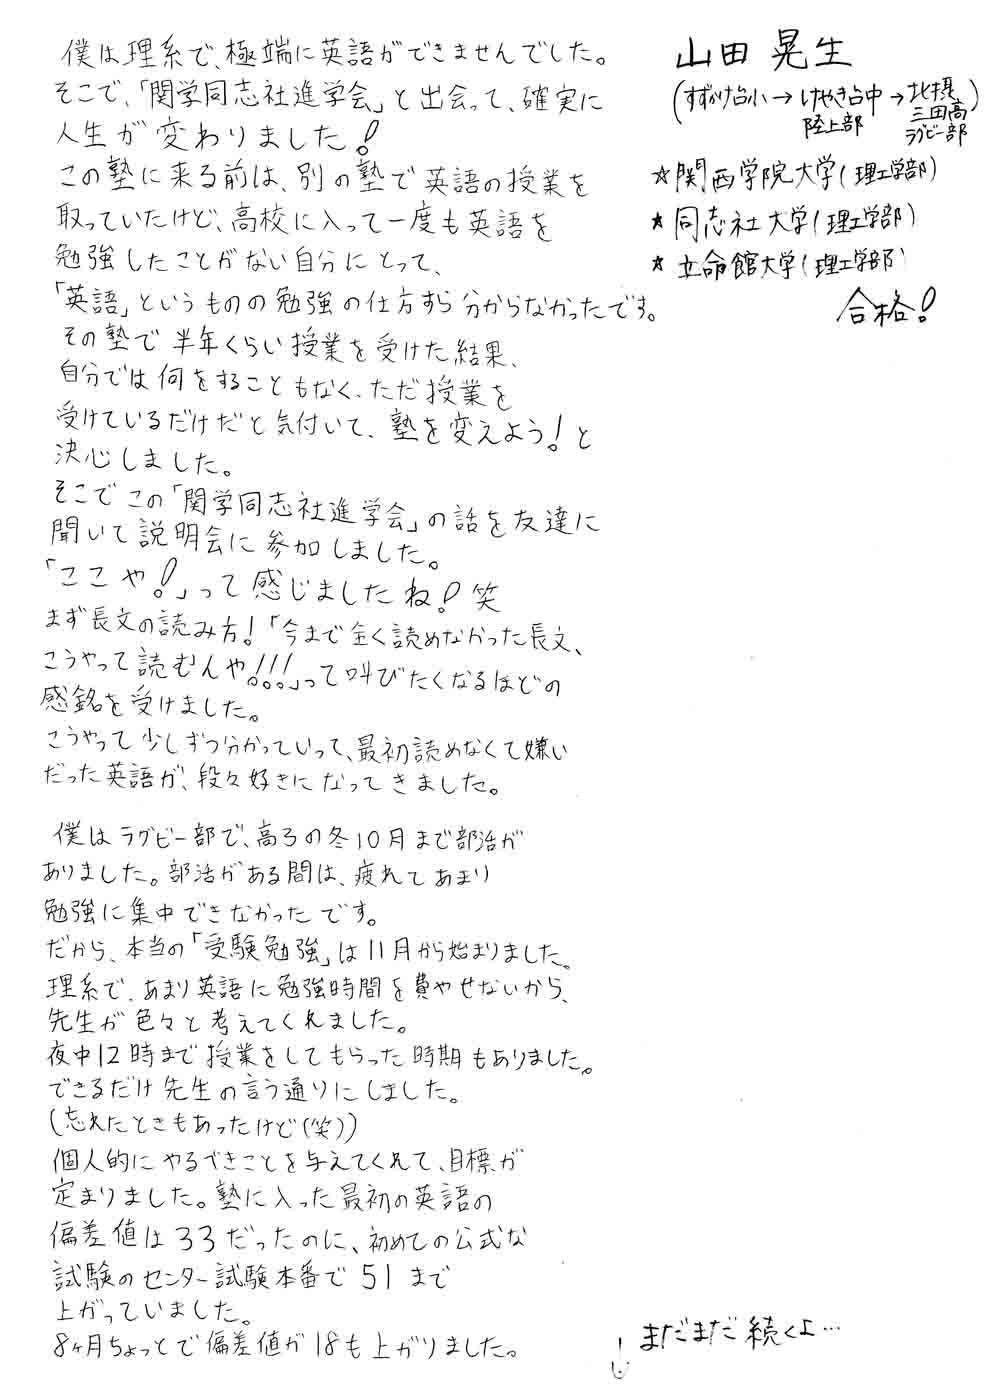 山田 晃生
(すずかけ台小→けやき台中→北摂三田高)
陸上部
ラグビー部
☆関西学院大学(理工学部)
☆同志社大学(理工学部)
☆立命館大学(理工学部)
合格!
僕は理系で、極端に英語ができませんでした。
そこで、「関学同志社進学会」と出会って、確実に
人生が変わりました!
この塾に来る前は、別の塾で英語の授業を
取っていたけど、高校に入って一度も英語を
勉強したことがない自分にとって、
「英語」というものの勉強の仕方すら分からなかったです。
その塾で半年くらい授業を受けた結果、
自分では何をすることもなく、ただ授業を
受けているだけだと気付いて、塾を変えよう!と
決心しました。
そこでこの「関学同志社進学会」の話を友達に
聞いて説明会に参加しました。
「ここや!」って感じましたね!笑
まず長文の読み方!「今まで全く読めなかった長文、
こうやって読むんや!!!」って叫びたくなるほどの
感銘を受けました。
こうやって少しずつ分かっていって、最初読めなくて嫌い
だった英語が、段々好きになってきました。
僕はラグビー部で、高3の冬10月まで部活が
ありました。部活がある間は、疲れてあまり
勉強に集中できなかったです。
だから、本当の「受験勉強」は11月から始まりました。
理系で、あまり英語に勉強時間を費やせないから、
先生が色々と考えてくれました。
夜中12時まで授業をしてもらった時期もありました。
できるだけ先生の言う通りにしました。
(忘れたときもあったけど(笑))
個人的にやるべきことを与えてくれて、目標が
定まりました。塾に入った最初の英語の
偏差値は33だったのに、初めての公式な
試験のセンター試験本番で51まで
上がっていました。
8ヶ月ちょっとで偏差値が18も上がりました。
まだまだ続くよ…